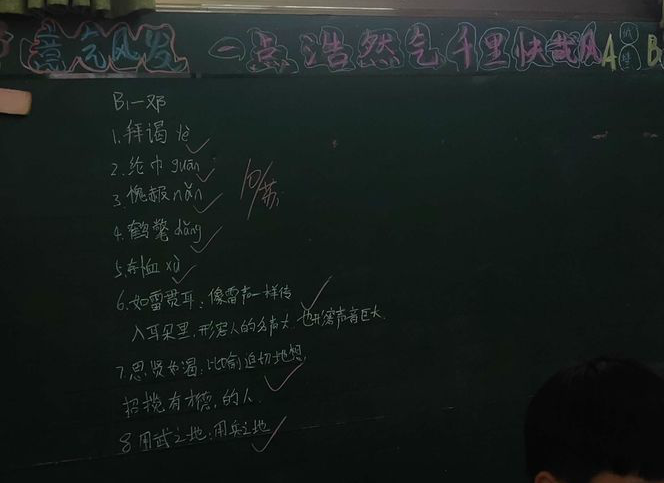 意气风发 一点浩然气 千里快哉风 A B
B1-邓
1.拜谒 yè
2.纶巾 guān
3.愧赧 nǎn
4.鹤氅 chǎng
5.抚恤 xù
6.如雷贯耳：像雷声一样传
入耳朵里,形容人的名声大.也形容声音巨大.
7.思贤如渴：比喻迫切地想
招揽有才德.的人.
8用武之地：用兵之地
10/